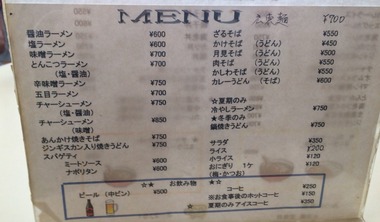 MENU
¥700
醤油ラーメン ¥600
塩ラーメン ¥600
味噌ラーメン ¥700
とんこつラーメン ¥700
(塩・醤油)
辛味噌ラーメン ¥750
五目ラーメン ¥700
チャーシューメン ¥750
(塩・醤油)
チャーシューメン ¥850
(味噌)
あんかけ焼きそば ¥750
ジンギスカン入り焼きうどん ¥750
スパゲティ
ミートソース ¥600
ナポリタン ¥700
ざるそば ¥550
かけそば (うどん) ¥450
月見そば (うどん) ¥500
肉そば (うどん) ¥550
かしわそば (うどん) ¥550
カレーうどん (そば) ¥600
☆夏期のみ
冷やしラーメン ¥750
☆冬季のみ
鍋焼きうどん ¥750
サラダ ¥350
ライス ¥200
小ライス ¥120
おにぎり 1ケ ¥120
(梅・かつお)
☆☆ お飲み物 ☆☆
ビール (中ビン) ¥500
コーヒ ¥250
(※お食事後のホットコーヒ ¥150
夏期のみ アイスコーヒ ¥350